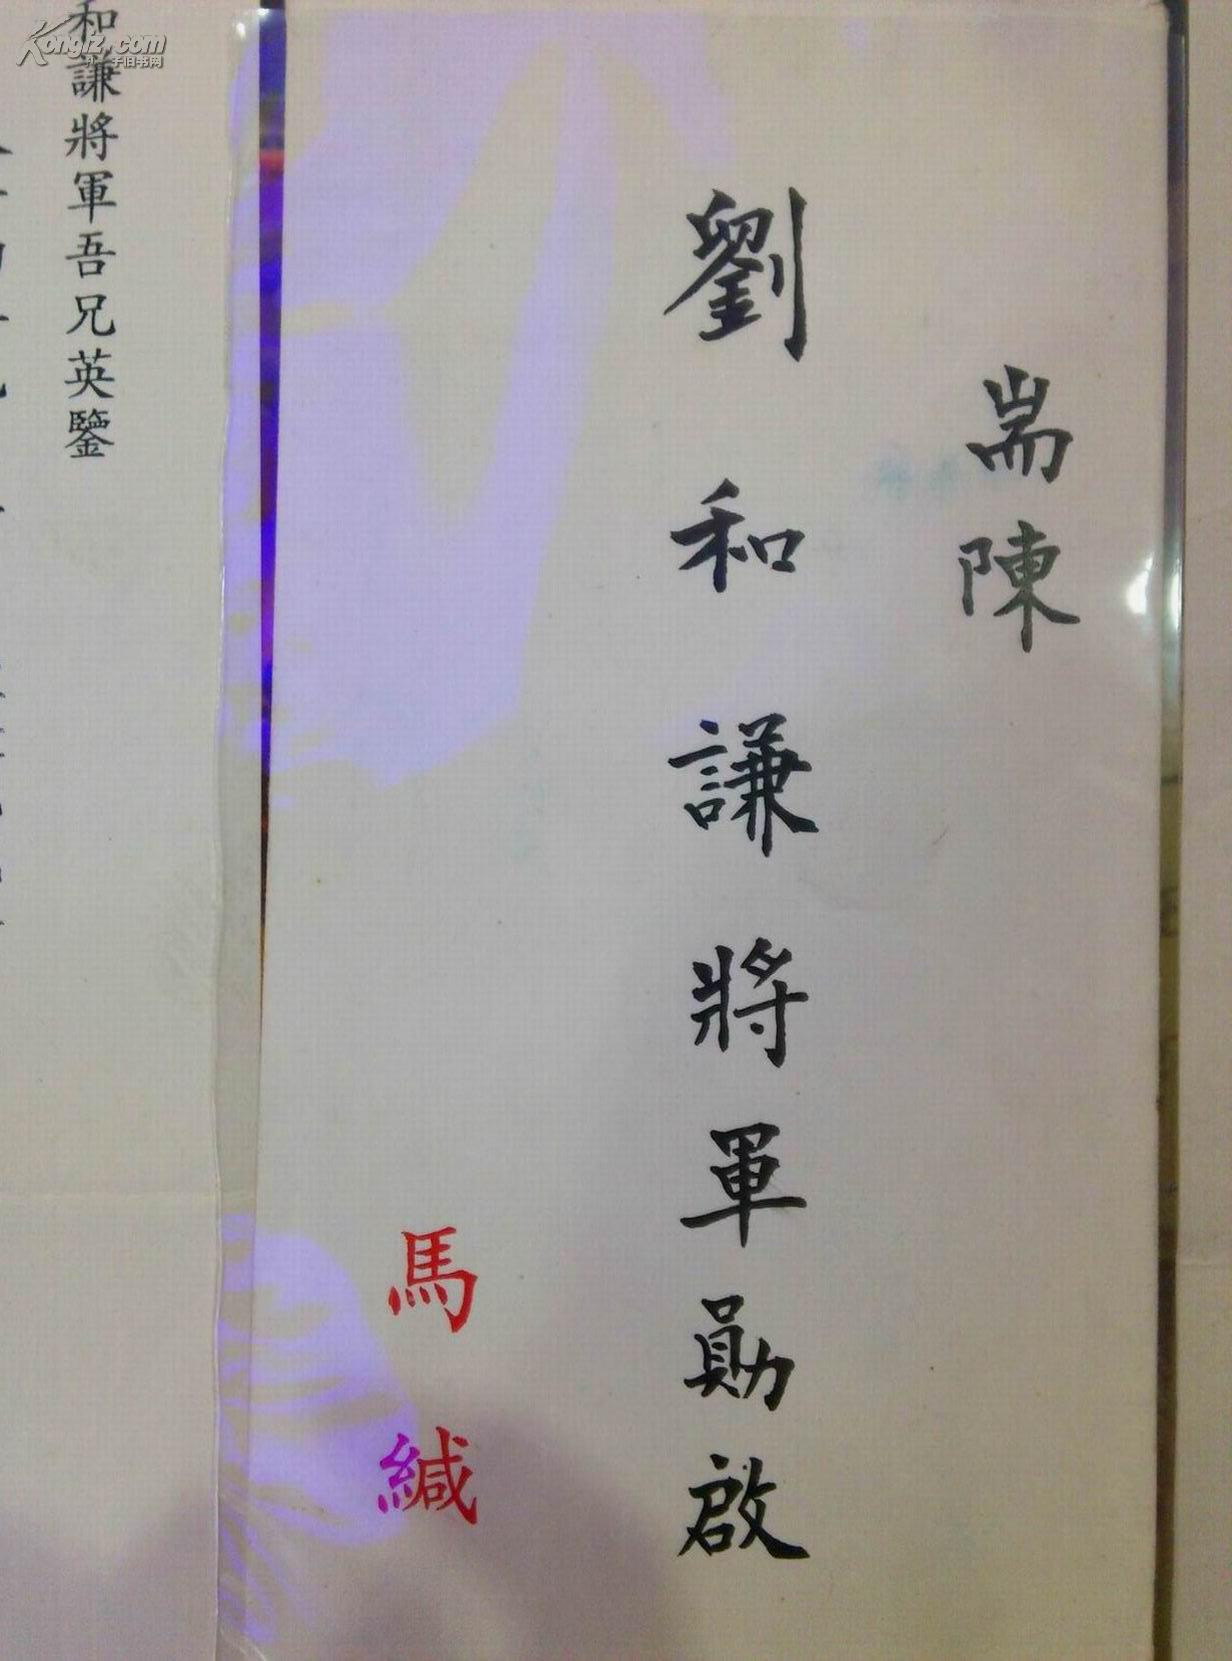 耑陳
劉和謙將軍勛啟
馬緘
和謙將軍吾兄英鑒
Kongfz.com
孔夫子旧书网